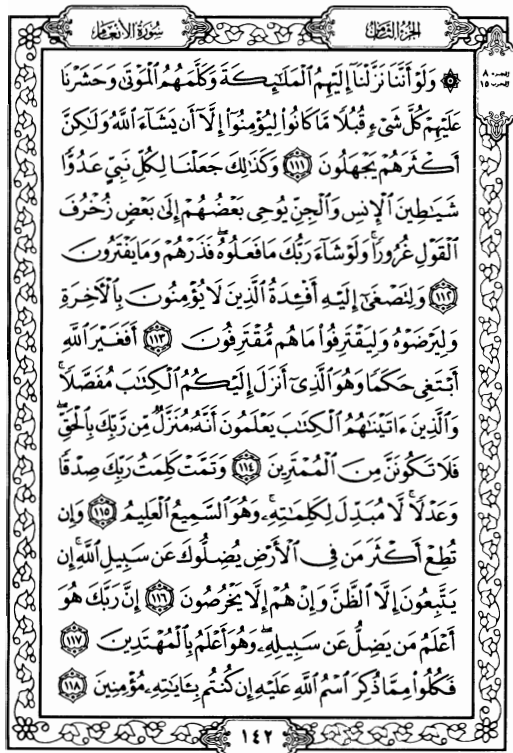 الجزء الثامن
سورة الأنعام
الجزء ٨
الحزب ١٥
۞ وَلَوْ أَنَّنَا نَزَّلْنَا إِلَيْهِمُ الْمَلَٰٓئِكَةَ وَكَلَّمَهُمُ الْمَوْتَىٰ وَحَشَرْنَا
عَلَيْهِمْ كُلَّ شَىْءٍ قُبُلًا مَّا كَانُوا۟ لِيُؤْمِنُوٓا۟ إِلَّآ أَن يَشَآءَ اللَّهُ وَلَٰكِنَّ
أَكْثَرَهُمْ يَجْهَلُونَ ۝١١١ وَكَذَٰلِكَ جَعَلْنَا لِكُلِّ نَبِىٍّ عَدُوًّا
شَيَٰطِينَ الْإِنسِ وَالْجِنِّ يُوحِى بَعْضُهُمْ إِلَىٰ بَعْضٍ زُخْرُفَ
الْقَوْلِ غُرُورًا ۚ وَلَوْ شَآءَ رَبُّكَ مَا فَعَلُوهُ ۖ فَذَرْهُمْ وَمَا يَفْتَرُونَ
۝١١٢ وَلِتَصْغَىٰٓ إِلَيْهِ أَفْـِٔدَةُ الَّذِينَ لَا يُؤْمِنُونَ بِالْءَاخِرَةِ
وَلِيَرْضَوْهُ وَلِيَقْتَرِفُوا۟ مَا هُم مُّقْتَرِفُونَ ۝١١٣ أَفَغَيْرَ اللَّهِ
أَبْتَغِى حَكَمًا وَهُوَ الَّذِىٓ أَنزَلَ إِلَيْكُمُ الْكِتَٰبَ مُفَصَّلًا ۚ
وَالَّذِينَ ءَاتَيْنَٰهُمُ الْكِتَٰبَ يَعْلَمُونَ أَنَّهُۥ مُنَزَّلٌ مِّن رَّبِّكَ بِالْحَقِّ ۖ
فَلَا تَكُونَنَّ مِنَ الْمُمْتَرِينَ ۝١١٤ وَتَمَّتْ كَلِمَتُ رَبِّكَ صِدْقًا
وَعَدْلًا ۚ لَّا مُبَدِّلَ لِكَلِمَٰتِهِۦ ۚ وَهُوَ السَّمِيعُ الْعَلِيمُ ۝١١٥ وَإِن
تُطِعْ أَكْثَرَ مَن فِى الْأَرْضِ يُضِلُّوكَ عَن سَبِيلِ اللَّهِ ۚ إِن
يَتَّبِعُونَ إِلَّا الظَّنَّ وَإِنْ هُمْ إِلَّا يَخْرُصُونَ ۝١١٦ إِنَّ رَبَّكَ هُوَ
أَعْلَمُ مَن يَضِلُّ عَن سَبِيلِهِۦ ۖ وَهُوَ أَعْلَمُ بِالْمُهْتَدِينَ ۝١١٧
فَكُلُوا۟ مِمَّا ذُكِرَ اسْمُ اللَّهِ عَلَيْهِ إِن كُنتُم بِـَٔايَٰتِهِۦ مُؤْمِنِينَ ۝١١٨
١٤٢